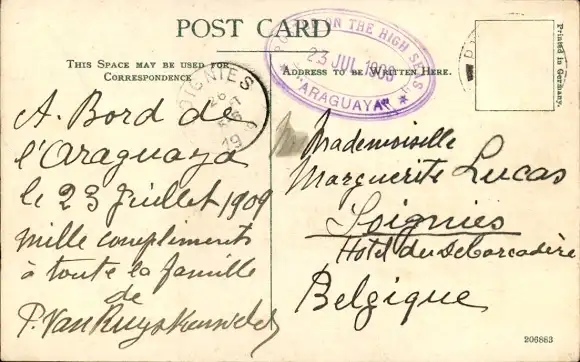 POST CARD
THIS SPACE MAY BE USED FOR
CORRESPONDENCE
ADDRESS TO BE WRITTEN HERE.
Printed in Germany.
POSTED ON THE HIGH SEAS
23 JUL 1909
"ARAGUAYA"
SOIGNIES
26
1909
A Bord de
l'Araguaya
le 23 Juillet 1909
mille compliments
à toute la famille
de
P. Van
Mademoiselle
Marguerite Lucas
Soignies
Hotel du Debarcadère
Belgique
206863